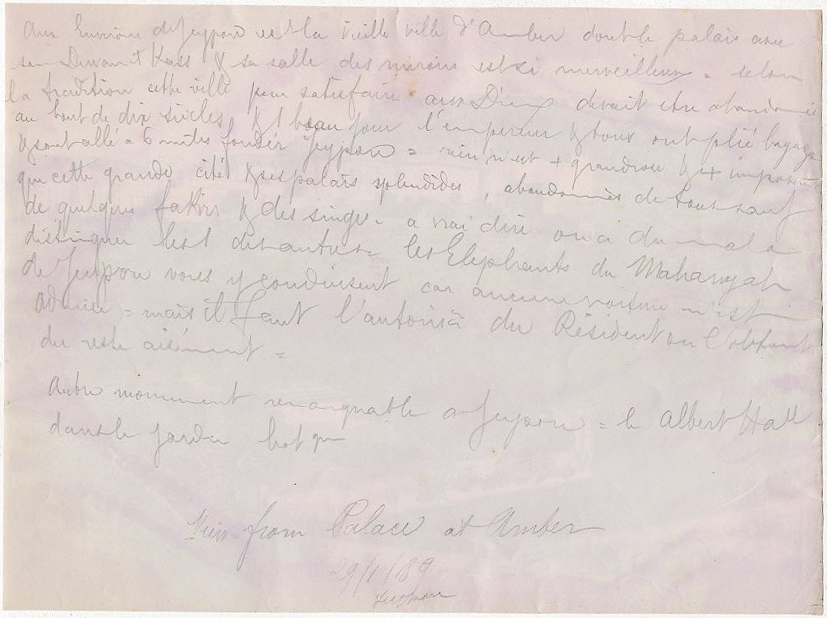 Aux Environs de Jeypore est la vieille ville d'Amber dont le palais avec
son Diwan t Kass & sa salle des miroirs est si merveilleux = selon
la tradition cette ville pour satisfaire aux Dieux devait être abandonnée
au bout de dix siècles, & 1 beau jour l'empereur & tous ont plié bagage
& sont allé à 6 miles fonder Jeypore = rien n'est + grandiose & + imposant
que cette grande cité & ses palais splendides, abandonnés de tous sauf
de quelques fakirs & des singes = a vrai dire on a du mal a
distinguer les 1 des autres = les Elephants du Maharajah
de Jeypore vous y conduisent car aucune voiture n'est
admise = mais il faut l'autorisa du Résident on l'obtient
du reste aisément =
Autre monument remarquable a Jeypore = le Albert Hall
dans le jardin bot que
View from Palace at Amber
29/1/89